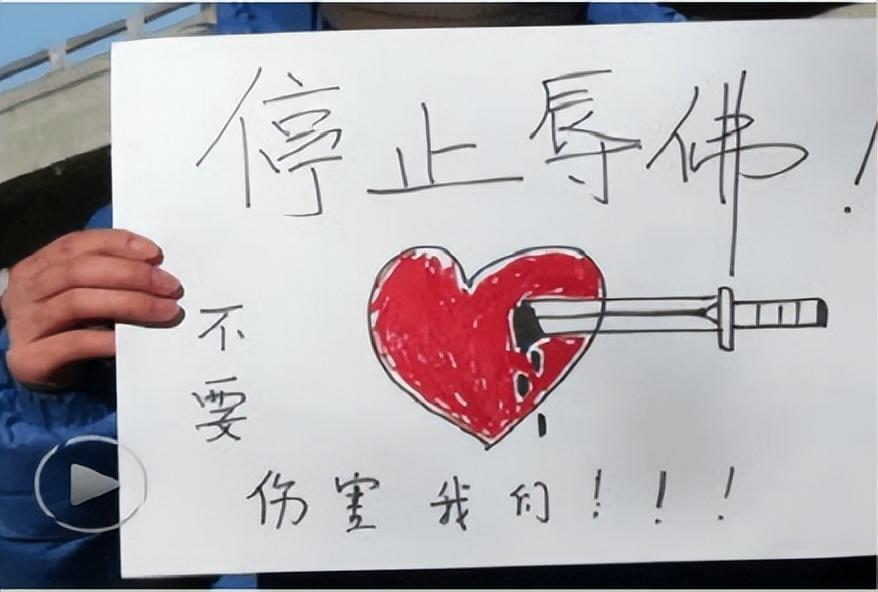 停止辱佛！
不要
伤害我们！！！